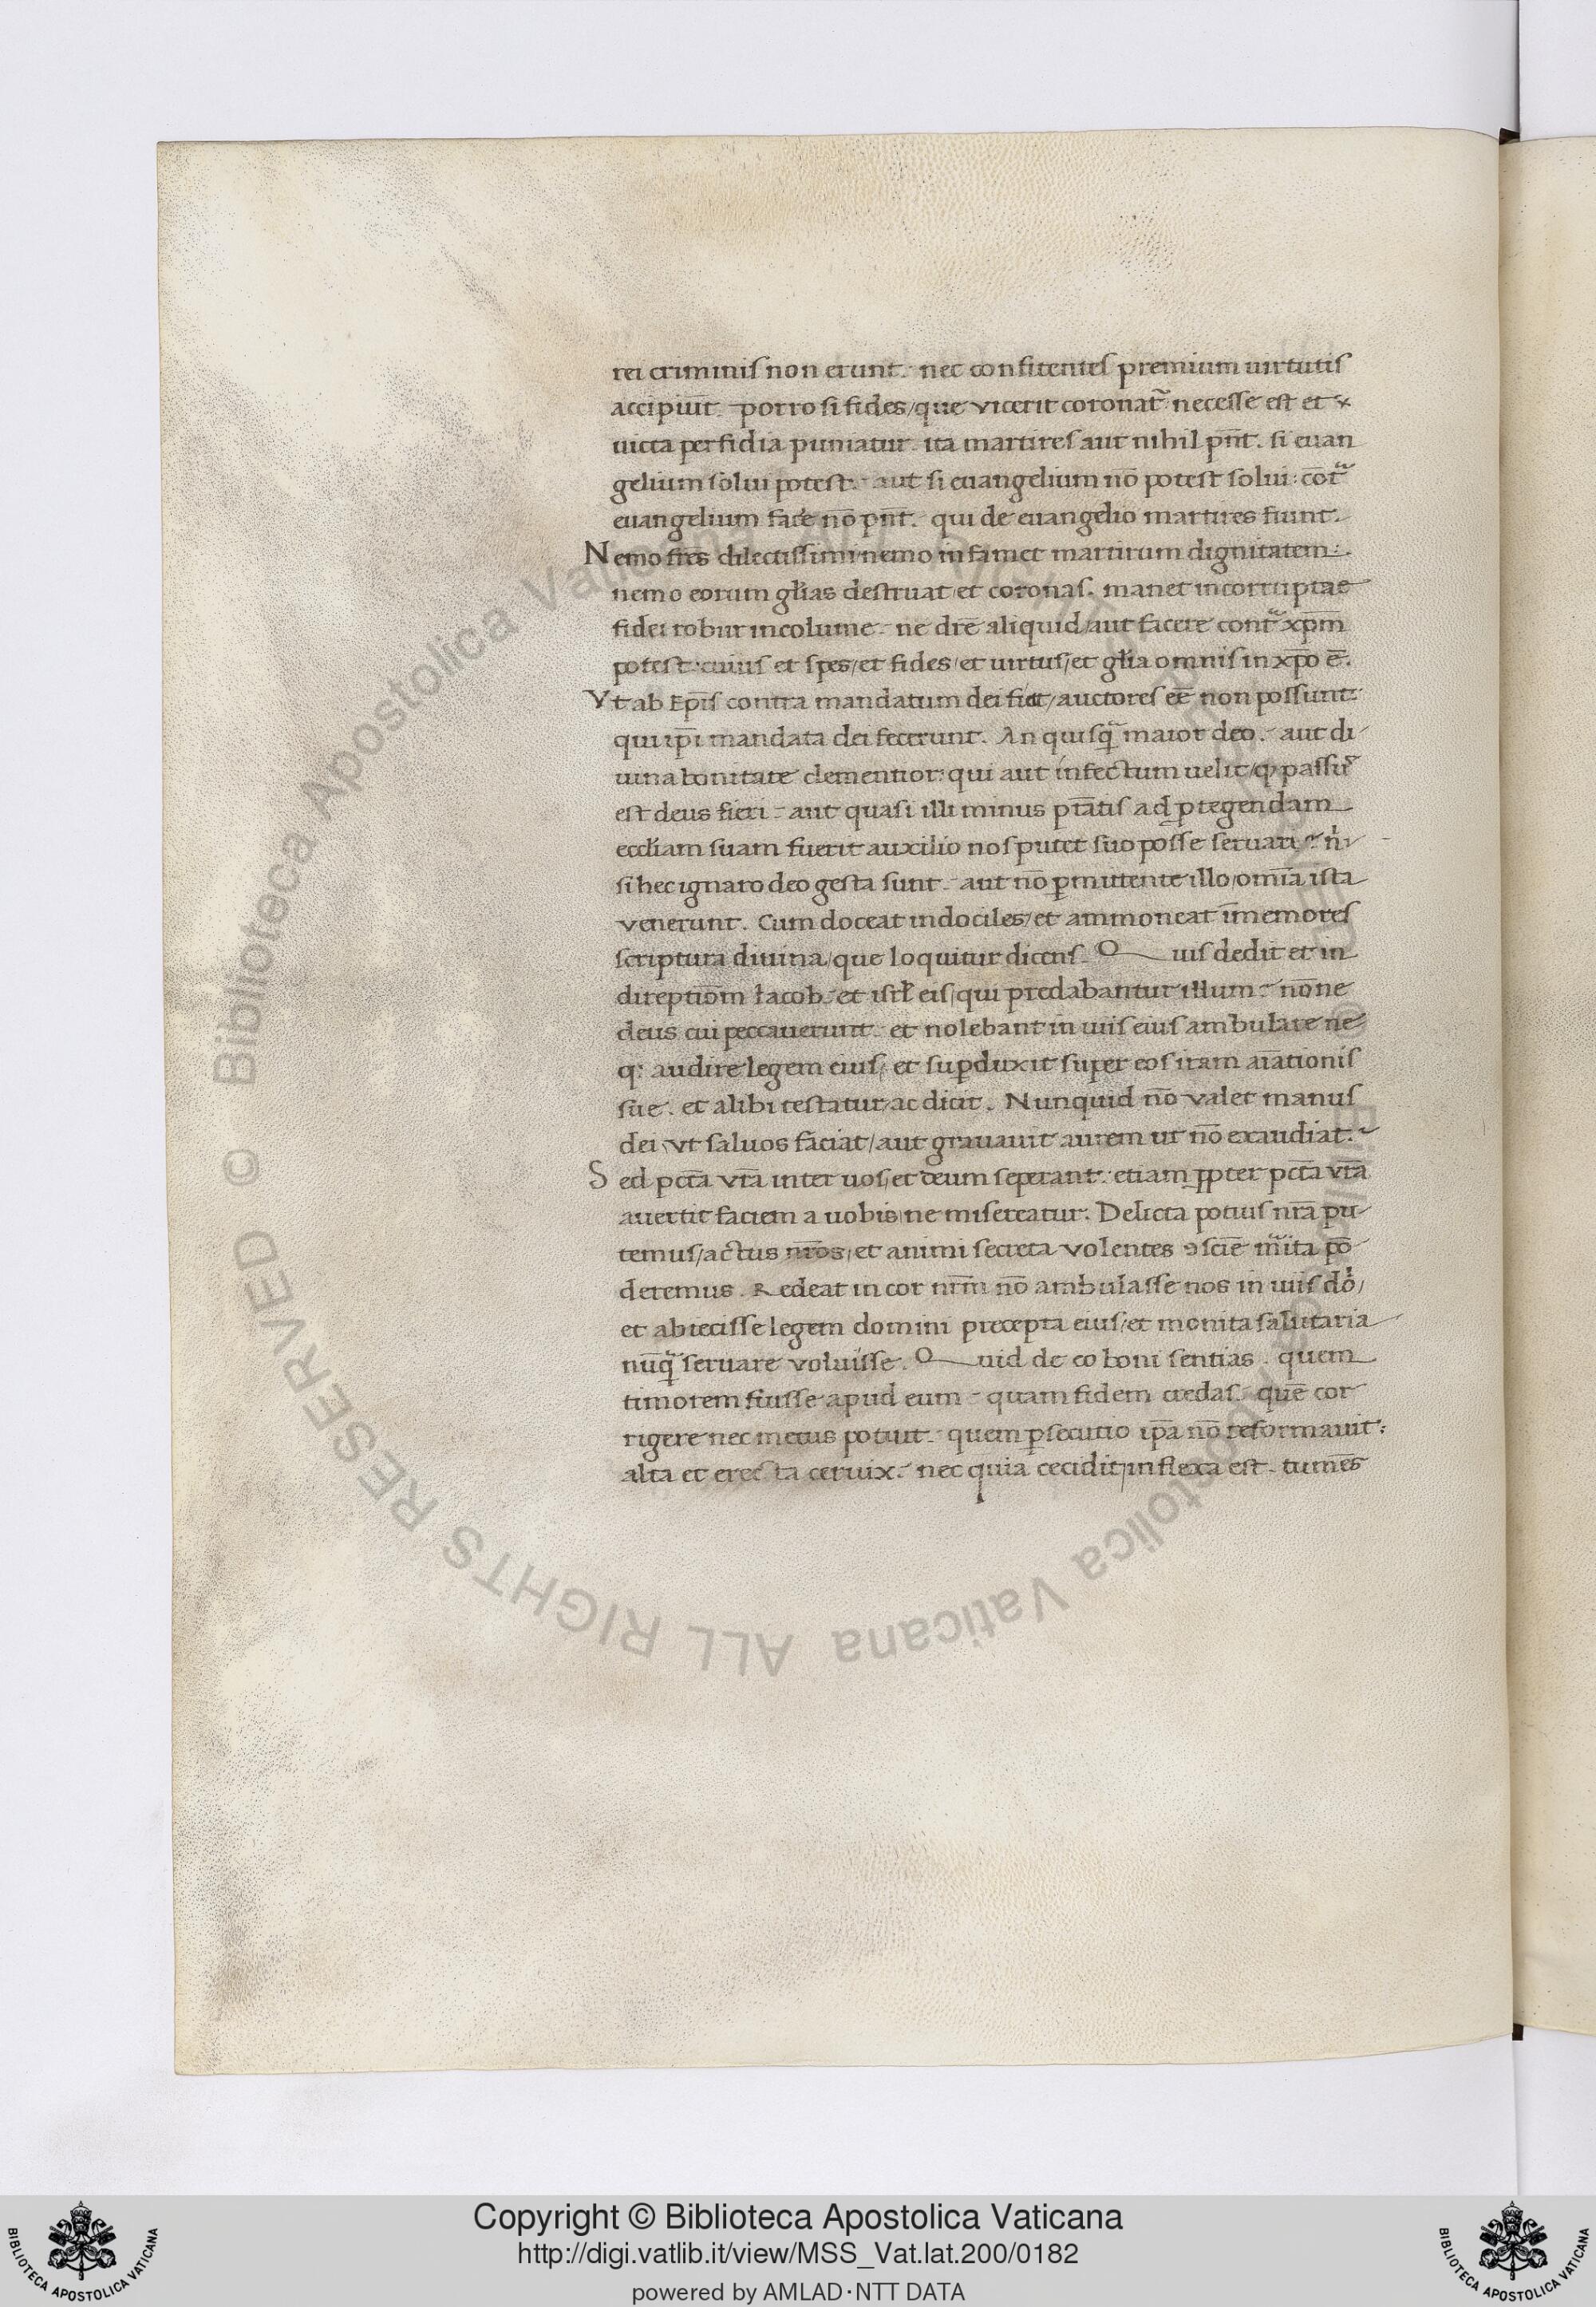 rei criminis non erunt. nec confitentes premium uirtutis
accipiūt. porro si fides/que vicerit coronat᷑ necesse est et
uicta perfidia puniatur. ita martires aut nihil pn̄t. si euan
gelium solui potest. aut si euangelium nō potest solui: cōtᷓ
euangelium face᷑ nō pn̄t. qui de euangelio martires fiunt.
Nemo fr̄es dilectissimi nemo infamet martirum dignitatem.
nemo eorum gl̄ias destruat/et coronas. manet incorruptae
fidei robur incolume. ne dr̄e aliquid/aut facere contᷓ xp̄m
potest: cuius et spes/et fides/et uirtus/et gl̄ia omnis in xp̄o ē.
Vt ab Ep̄is contra mandatum dei fiat/auctores ēē non possunt:
qui ip̄i mandata dei fecerunt. An quisqᷓ maior deo. aut di
uina bonitate clementior: qui aut infectum uelit/qɔ passu᷑
est deus fieri. aut quasi illi minus pt̄atis ad ꝓtegendam
ecc̄liam suam fuerit auxilio nos putet suo posse seruari. nͥ
si hec ignaro deo gesta sunt. aut nō ꝑmittente illo/om̄ia ista
venerunt. Cum doceat indociles/et ammoneat īmemores
scriptura diuina/que loquitur dicens. Quis dedit et in
direptiōm Iacob. et isrł eis/qui predabantur illum. nōne
deus cui peccauerunt. et nolebant in uiis eius ambulare ne
q: audire legem eius/ et suꝑduxit super eos iram aīationis
sue. et alibi testatur/ac dicit. Nunquid nō valet manus
dei vt saluos faciat/aut grauauit aurem ut nō exaudiat.
Sed pct̄a vr̄a inter uos/et deum seperant. etiam ꝓpter pct̄a vr̄a
auertit faciem a uobis ne misereatur. Delicta potius nr̄a pu
temus/actus nr̄os/et animi secreta volentes ɔscīe mᷓita pō
deremus. Redeat in cor nr̄m nō ambulasse nos in uiis do͛/
et abiecisse legem domini precepta eius/et monita salutaria
nūqᷓ seruare voluisse. Quid de eo boni sentias. quem
timorem fuisse apud eum. quam fidem credas. quē cor
rigere nec metus potuit. quem ꝑsecutio ip̄a nō reformauit:
alta et erecta ceruix. nec quia cecidit inflexa est. tumēs
Copyright © Biblioteca Apostolica Vaticana
http://digi.vatlib.it/view/MSS_Vat.lat.200/0182
powered by AMLAD·NTT DATA